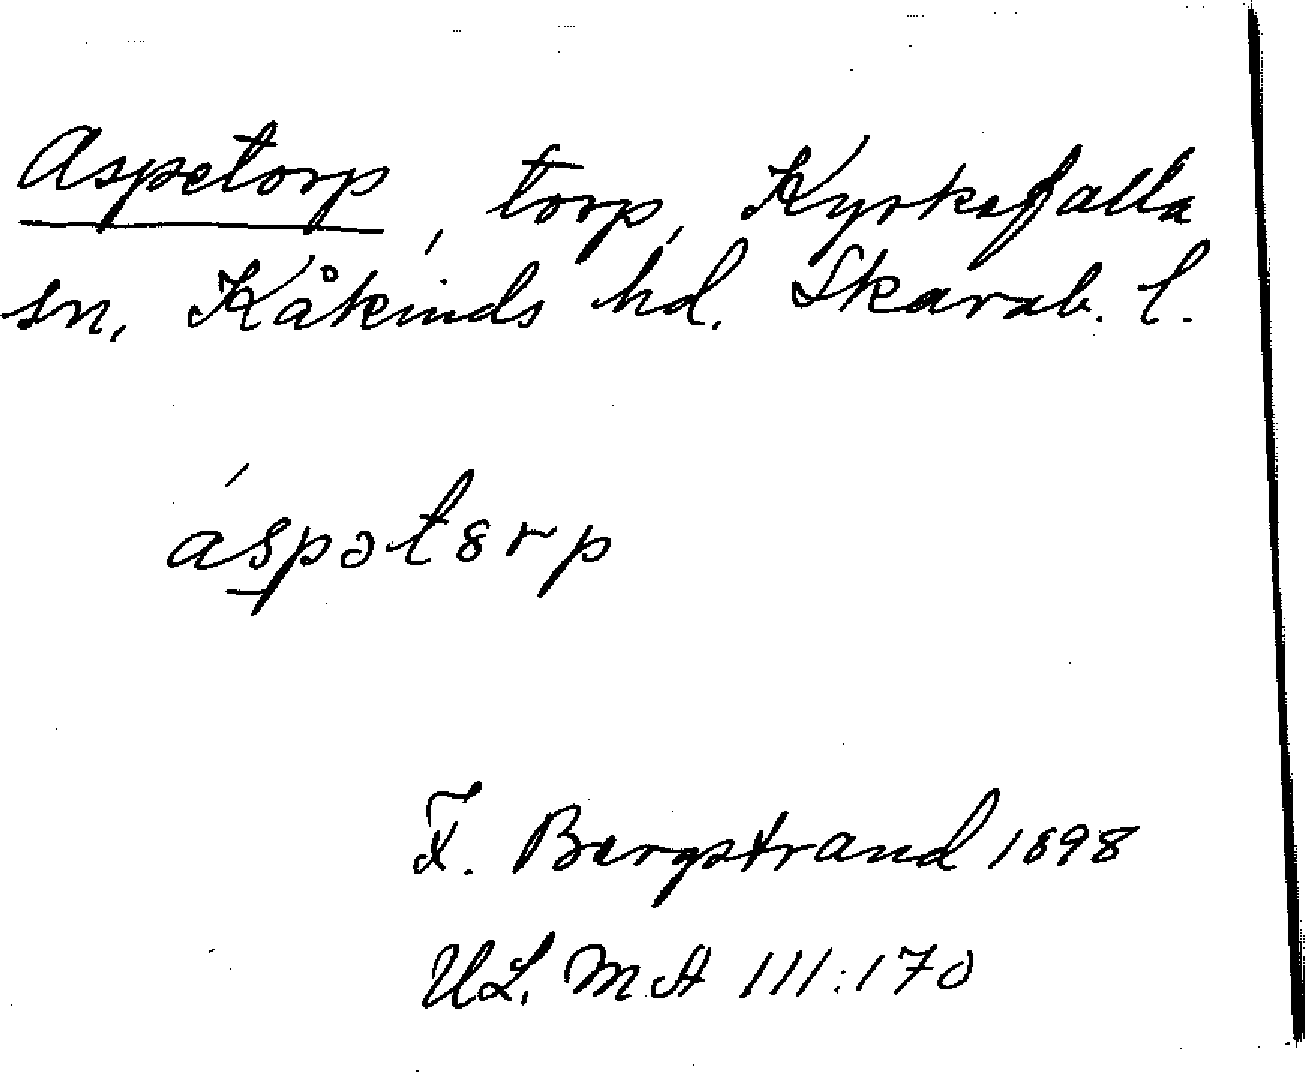 Aspetorp, torp, Kyrkefalla
sn, Kåkinds hd. Skarab. l.
áspətȣrp
F. Bergstrand 1898
UL, MA III:170